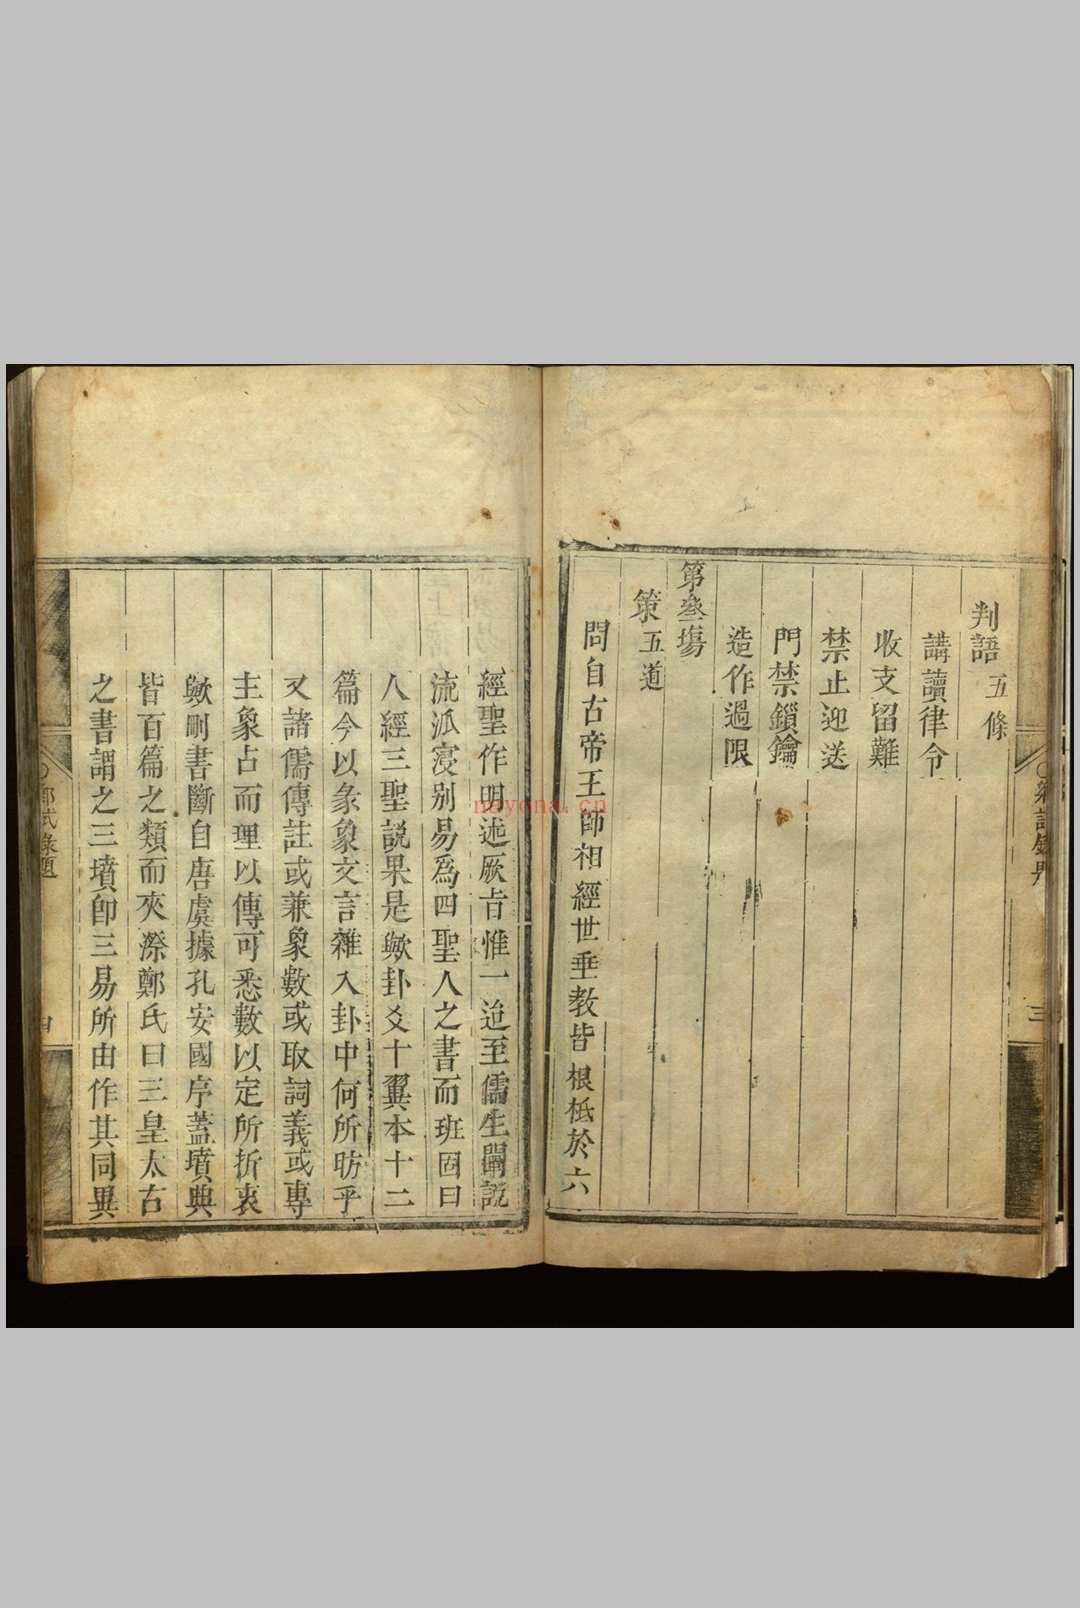 判語五條
講讀律令
收支留難
禁止迎送
門禁鎖鑰
造作過限
第叄塲
策五道
問自古帝王師相經世垂教皆根柢於六
三
經聖作明述厥旨惟一迨至儒生闢說
流派寖别易爲四聖人之書而班固曰
人經三聖說果是歟卦爻十翼本十二
篇今以彖象文言雜入卦中何所昉乎
又諸儒傳註或兼象數或取詞義或專
主象占而理以傳可悉數以定所折衷
歟刪書斷自唐虞據孔安國序蓋墳典
皆百篇之類而夾漈鄭氏曰三皇太古
之書謂之三墳卽三易所由作其同異
鄉試錄題
四
nayona.cn